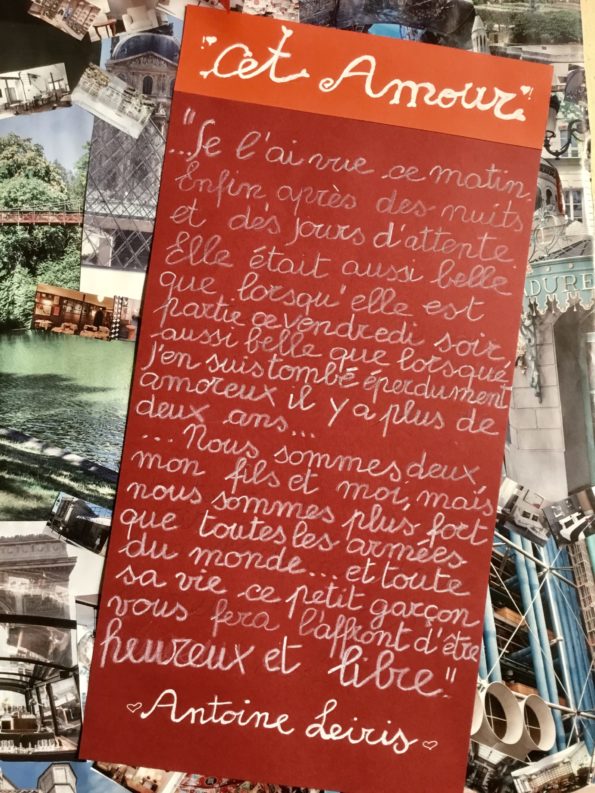 Cet Amour
"...Je l'ai vue ce matin.
Enfin après des nuits
et des jours d'attente.
Elle était aussi belle
que lorsqu'elle est
partie ce vendredi soir,
aussi belle que lorsque
j'en suis tombé éperdument
amoreux il y a plus de
deux ans...
... Nous sommes deux,
mon fils et moi, mais
nous sommes plus fort
que toutes les armées
du monde... et toute
sa vie ce petit garçon
vous fera l'affront d'être
heureux et libre."
Antoine Leiris
DURE